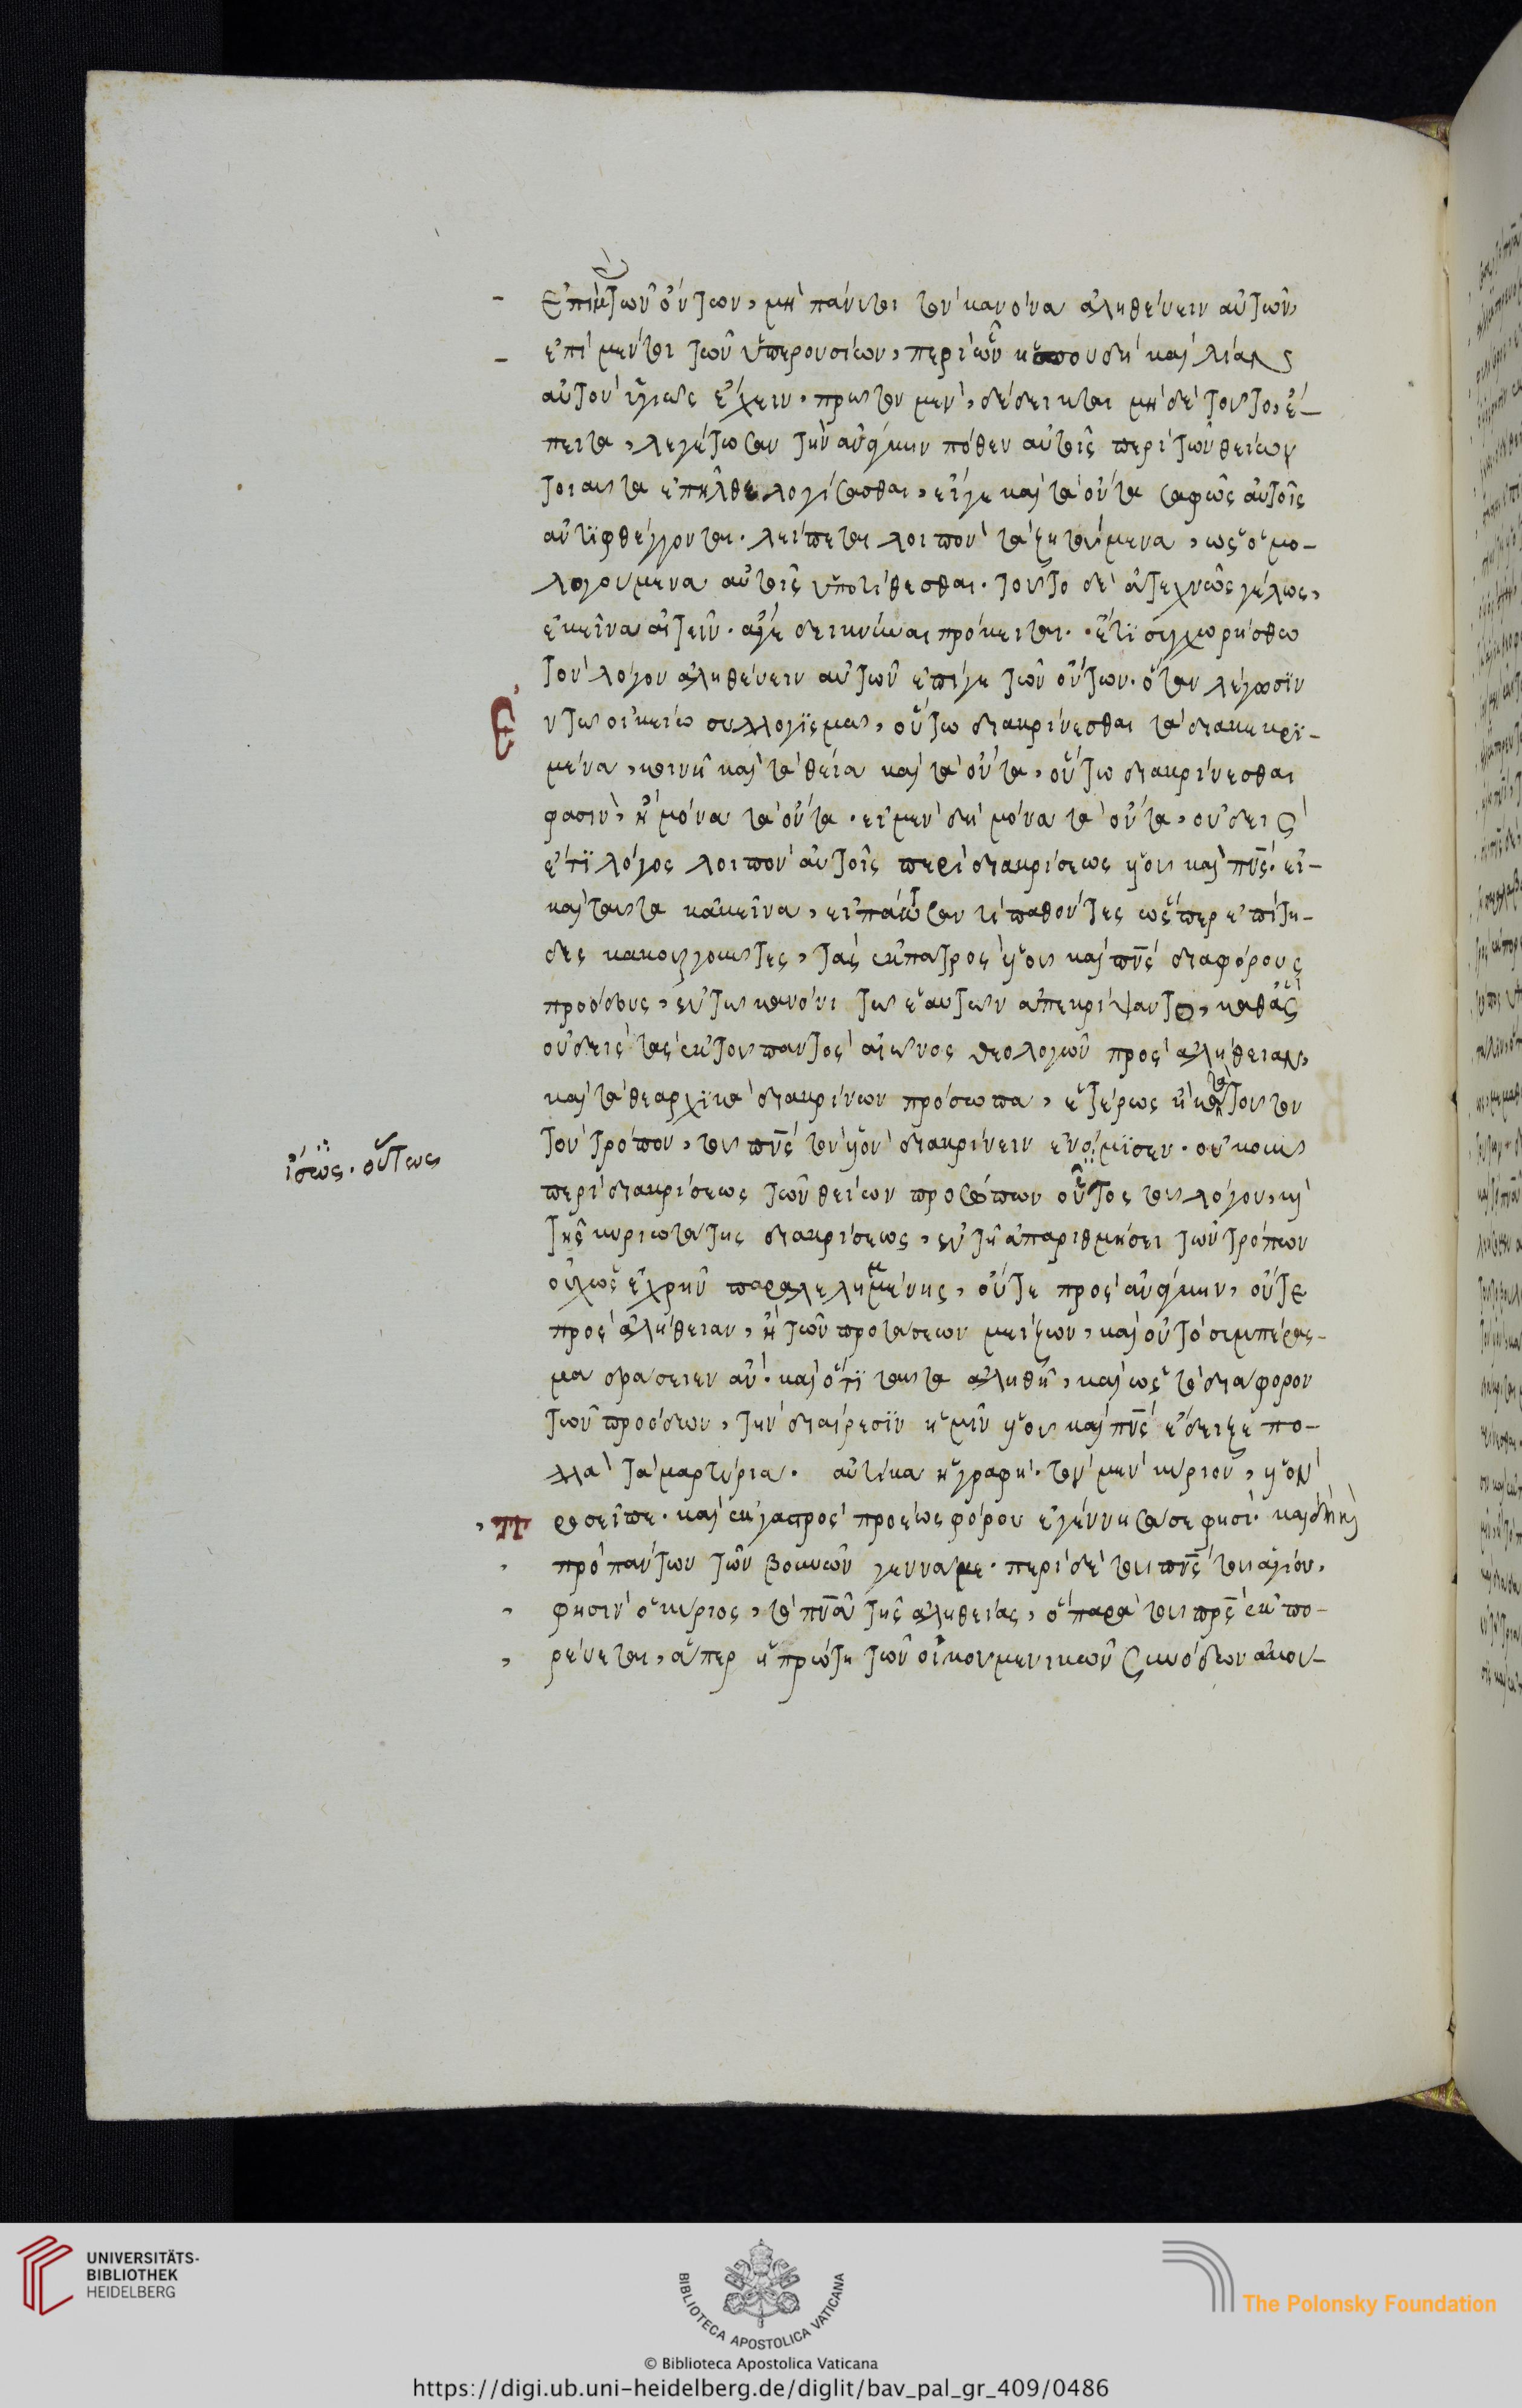 ἐπὶ μὲν τῶν ὄντων, μὴ πάντῃ τὸν κανόνα ἀληθεύειν αὐτῶν,
ἐπὶ μέντοι τῶν ὑπερουσίων, περὶ ὧν ἡ σπουδὴ καὶ λίαν
αὐτὸν ὑγιῶς ἔχειν. πρῶτον μὲν, δέδεικται μὴ δὲ τοῦτο, ἔ-
πειτα, λεγέτωσαν τὴν ἀνάγκην πόθεν αὐτοῖς περὶ τῶν θείων
τοιαῦτα ἐπῆλθε λογίσασθαι, εἴγε καὶ τὰ ὄντα σαφῶς αὐτοῖς
ἀντιφθέγγονται. λείπεται λοιπὸν τὰ ζητούμενα, ὡς ὁμο-
λογούμενα αὐτοῖς ὑποτίθεσθαι. τοῦτο δὲ ἀτεχνῶς γέλως,
ἐκεῖνα αἰτεῖν. ἅγε δεικνύναι πρόκειται. ἔτι συγχωρήσθω
τὸν λόγον ἀληθεύειν αὐτῶν ἐπίγε τῶν ὄντων. ὅταν λέγωσιν
ἐν τῷ οἰκείῳ συλλογισμῷ, οὕτω διακρίνεσθαι τὰ διακεκρι-
μένα, κοινῇ καὶ τὰ θεῖα καὶ τὰ ὄντα, οὕτω διακρίνεσθαι
φασὶν, ἢ μόνα τὰ ὄντα. εἰ μὲν δὴ μόνα τὰ ὄντα, οὐδεὶς
ἔτι λόγος λοιπὸν αὐτοῖς περὶ διακρίσεως υἱοῦ καὶ πνς. εἰ-
καὶ ταῦτα κἀκεῖνα, εἰπάτωσαν τί παθόντες ὥσπερ ἐπίτη-
δες κακουργοῦντες, τὰς ἐκ πατρὸς υἱοῦ καὶ πνς διαφόρους
προόδους, ἐν τῷ κανόνι τῷ ἑαυτῶν ἀπεκρίψαντο, καθὰς
οὐδεὶς τὰς ἐκ τοῦ παντὸς αἰῶνος θεολογῶν πρὸς ἀλήθειαν,
καὶ τὰ θεαρχικὰ διακρίνων πρόσωπα, ἑτέρως ἢ κατὰ τοῦτον
τὸν τρόπον, τοῦ πνς τὸν υἱὸν διακρίνειν ἐνόμισεν. οὐκοῦν
ἴσως. οὕτως
περὶ διακρίσεως τῶν θείων προσώπων ὄντος τοῦ λόγου, καὶ
τῆς κυριωτάτης διακρίσεως, ἐν τῇ ἀπαριθμήσει τῶν τρόπων
οὐχ ὡς ἐχρῆν παραλελημμένης, οὔτε πρὸς ἀνάγκην, οὔτε
πρὸς ἀλήθειαν, ἡ τῶν προτάσεων μείζων, καὶ οὐ τὸ συμπέρας-
μα δράσειεν ἄν. καὶ ὅτι ταῦτα ἀληθῆ, καὶ ὡς τὸ διάφορον
τῶν προόδων, τὴν διαίρεσιν ἡμῖν υἱοῦ καὶ πνς ἔδειξε πο-
λλὰ τὰ μαρτύρια. αὐτίκα ἡ γραφὴ. τὸν μὲν κύριον, υἱὸν
προσεῖπε. καὶ ἐκ γαστρὸς πρὸ ἑωσφόρου ἐγέννησά σε φησὶ. καὶ δὴ καὶ
πρὸ πάντων τῶν βουνῶν γεννᾷ με. περὶ δὲ τοῦ πνς τοῦ ἁγίου,
φησὶν ὁ κύριος, τὸ πνα τῆς ἀληθείας, ὃ παρὰ τοῦ πρς ἐκπο-
ρεύεται, ἅπερ ἡ πρώτη τῶν οἰκουμενικῶν συνόδων ἀκού-
UNIVERSITÄTS-
BIBLIOTHEK
HEIDELBERG
BIBLIOTECA APOSTOLICA VATICANA
The Polonsky Foundation
© Biblioteca Apostolica Vaticana
https://digi.ub.uni-heidelberg.de/diglit/bav_pal_gr_409/0486